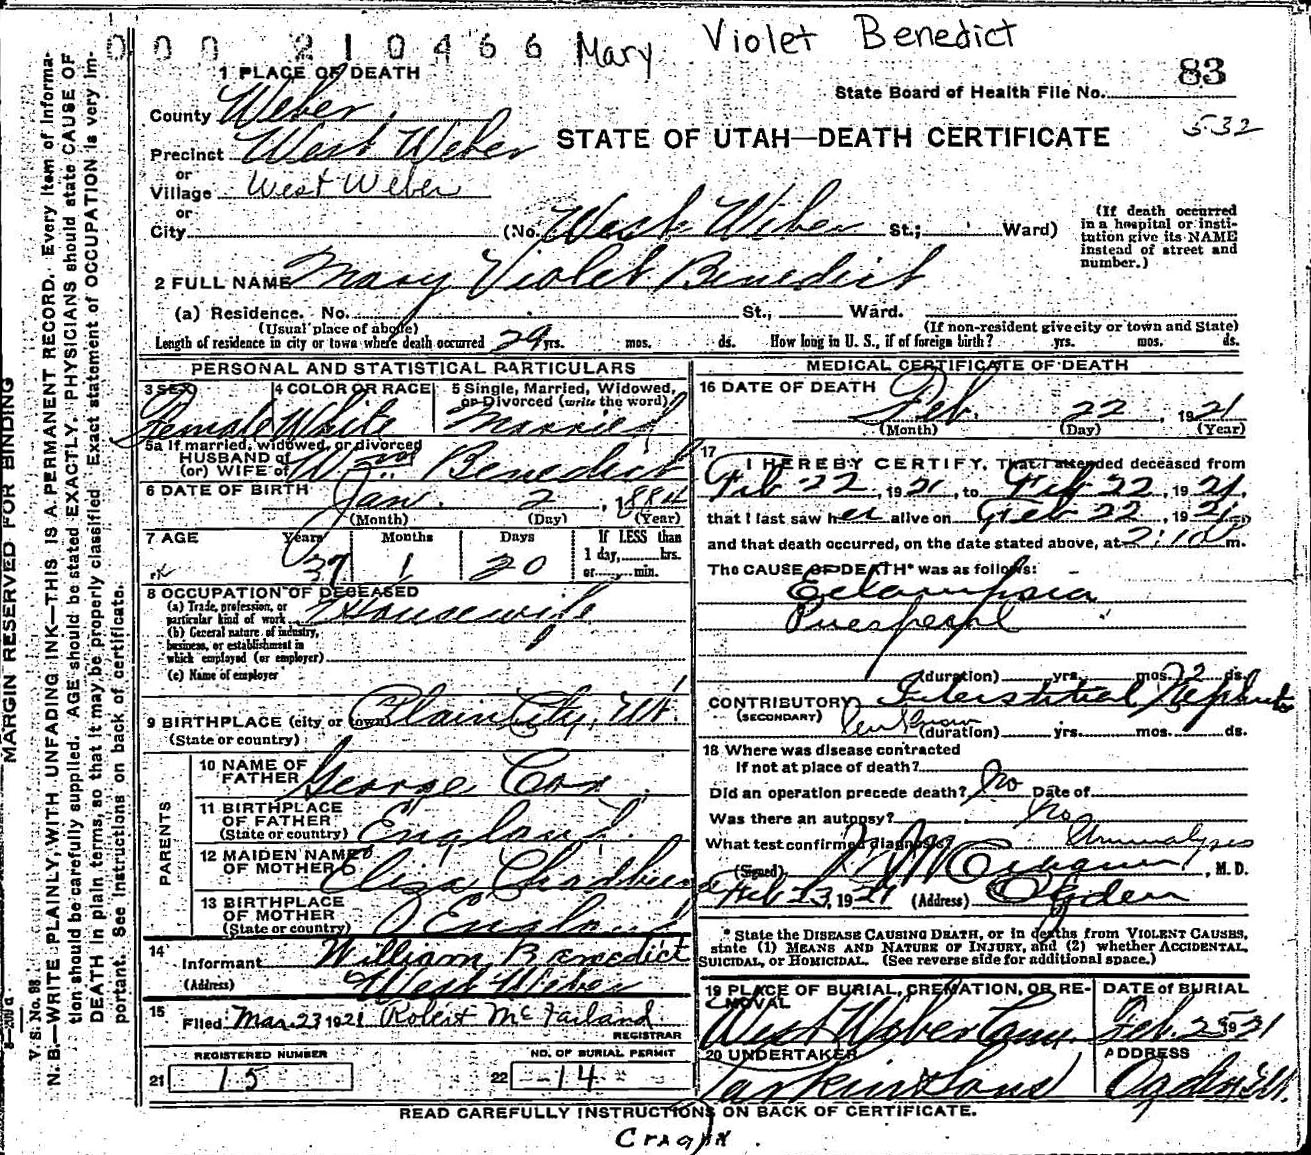 000 210466 Mary Violet Benedict
83
1 PLACE OF DEATH
State Board of Health File No.
532
County Weber
STATE OF UTAH—DEATH CERTIFICATE
Precinct West Weber
or
Village West Weber
or
City (No. West Weber St.; Ward)
(If death occurred
in a hospital or insti-
tution give its NAME
instead of street and
number.)
2 FULL NAME Mary Violet Benedict
(a) Residence. No. St., Ward.
(Usual place of abode) (If non-resident give city or town and State)
Length of residence in city or town where death occurred 29 yrs. mos. ds. How long in U. S., if of foreign birth? yrs. mos. ds.
PERSONAL AND STATISTICAL PARTICULARS
3 SEX 4 COLOR OR RACE 5 Single, Married, Widowed,
or Divorced (write the word)
Female White Married
5a If married, widowed, or divorced
HUSBAND of
(or) WIFE of Wm Benedict
6 DATE OF BIRTH Jan. 2, 1884
(Month) (Day) (Year)
7 AGE Years Months Days If LESS than
1 day, hrs.
or min.
37 1 20
8 OCCUPATION OF DECEASED
(a) Trade, profession, or
particular kind of work Housewife
(b) General nature of industry,
business, or establishment in
which employed (or employer)
(c) Name of employer
9 BIRTHPLACE (city or town) Plain City, Ut.
(State or country)
PARENTS
10 NAME OF
FATHER George Cox
11 BIRTHPLACE
OF FATHER
(State or country) England
12 MAIDEN NAME
OF MOTHER Eliza
13 BIRTHPLACE
OF MOTHER
(State or country) England
14 Informant William Benedict
(Address) West Weber
15 Filed Mar. 23 1921 Robert McFarland
REGISTRAR
REGISTERED NUMBER NO. OF BURIAL PERMIT
21 15 22 14
MEDICAL CERTIFICATE OF DEATH
16 DATE OF DEATH
Feb. 22 1921
(Month) (Day) (Year)
17 I HEREBY CERTIFY, That I attended deceased from
Feb 22, 1921, to Feb 22, 1921,
that I last saw her alive on Feb 22, 1921,
and that death occurred, on the date stated above, at 2:10 m.
The CAUSE OF DEATH* was as follows:
Eclampsia
Puerperal
(duration) yrs. mos. ds.
CONTRIBUTORY Interstitial Nephritis
(SECONDARY)
(duration) yrs. mos. ds.
18 Where was disease contracted
If not at place of death?
Did an operation precede death? No Date of
Was there an autopsy? No
What test confirmed diagnosis? Urinalysis
(Signed) , M.D.
Feb 23, 1921 (Address) Ogden
* State the DISEASE CAUSING DEATH, or in deaths from VIOLENT CAUSES,
state (1) MEANS AND NATURE OF INJURY, and (2) whether ACCIDENTAL,
SUICIDAL, or HOMICIDAL. (See reverse side for additional space.)
19 PLACE OF BURIAL, CREMATION, OR RE-
MOVAL
West Weber Cem.
DATE of BURIAL
Feb. 25 1921
20 UNDERTAKER
Larkin & Sons
ADDRESS
Ogden, Ut.
READ CAREFULLY INSTRUCTIONS ON BACK OF CERTIFICATE.
MARGIN RESERVED FOR BINDING
V. S. No. 98
N. B.—WRITE PLAINLY, WITH UNFADING INK—THIS IS A PERMANENT RECORD. Every item of informa-
tion should be carefully supplied. AGE should be stated EXACTLY. PHYSICIANS should state CAUSE OF
DEATH in plain terms, so that it may be properly classified. Exact statement of OCCUPATION is very im-
portant. See instructions on back of certificate.